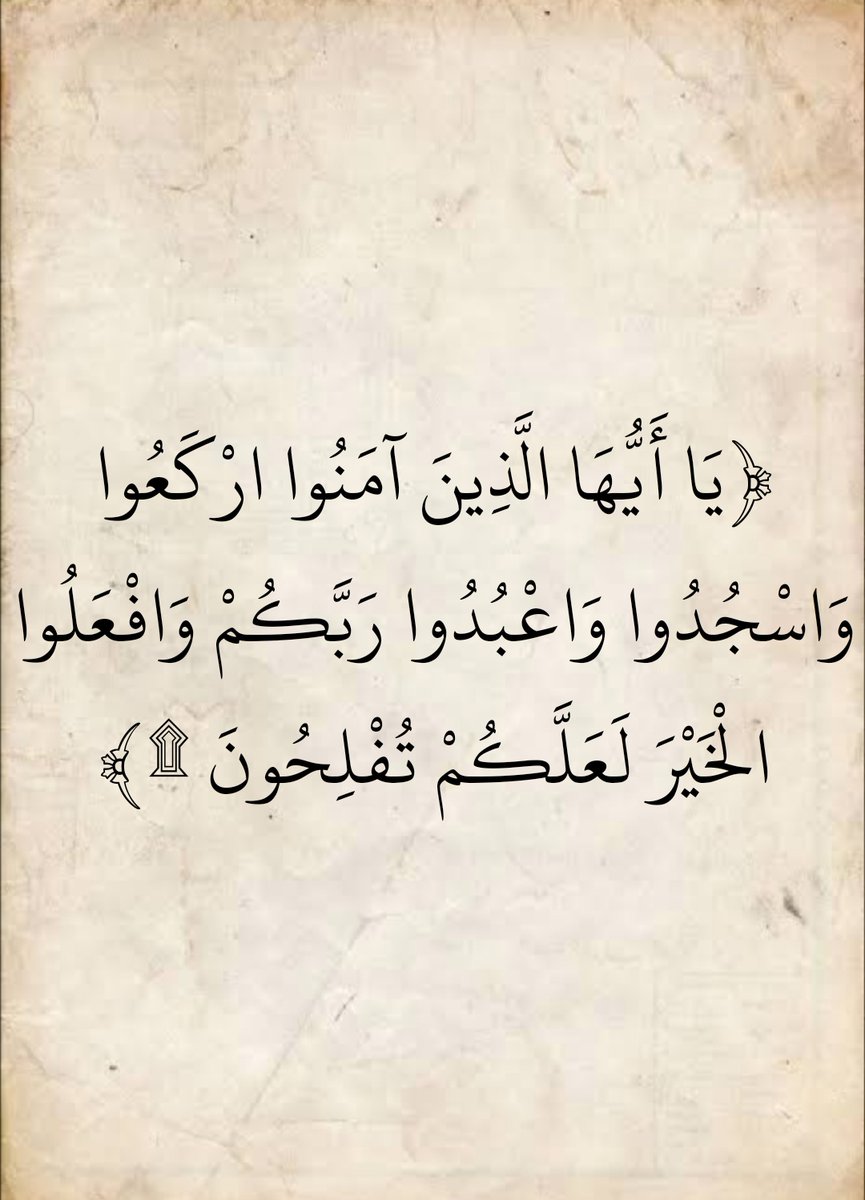 ﴿يَا أَيُّهَا الَّذِينَ آمَنُوا ارْكَعُوا
وَاسْجُدُوا وَاعْبُدُوا رَبَّكُمْ وَافْعَلُوا
الْخَيْرَ لَعَلَّكُمْ تُفْلِحُونَ ۩﴾